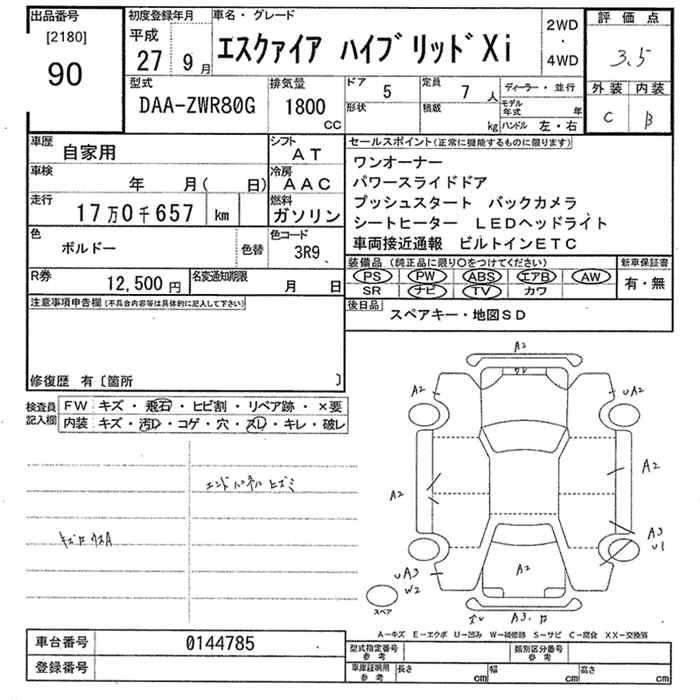 出品番号
[2180]
90
初度登録年月
平成
27年 9月
車名・グレード
エスクァイア ハイブリッドXi
2WD
・
4WD
評価点
3.5
外装 内装
C B
型式
DAA-ZWR80G
排気量
1800
CC
ドア 5
定員 7人
形状
積載 kg
ディーラー・並行
モデル年式 年
ハンドル 左・右
車歴 自家用
シフト AT
車検 年 月( 日)
冷房 AAC
走行 17万0千657 km
燃料 ガソリン
色 ボルドー 色替
色コード 3R9
R券 12,500円
名変通知期限 月 日
セールスポイント(正常に機能するものに限ります)
ワンオーナー
パワースライドドア
プッシュスタート バックカメラ
シートヒーター LEDヘッドライト
車両接近通報 ビルトインETC
装備品(純正品に限り○をつけてください)
新車保証書
PS PW ABS エアB AW
有・無
SR ナビ TV カワ
後日品
スペアキー・地図SD
注意事項申告欄(不具合内容等は具体的に記入して下さい)
修復歴 有〔箇所 〕
検査員記入欄
FW キズ・飛石・ヒビ割・リペア跡・×要
内装 キズ・汚レ・コゲ・穴・スレ・キレ・破レ
エンドパネルヒズミ
A2
A2
UA2
A2
A2
A3
U1
UA3
W2
A2
A3
スペア
A-キズ E-エクボ U-凹み W-補修跡 S-サビ C-腐食 XX-交換済
車台番号 0144785
登録番号
型式指定番号 参考
類別区分番号 参考
車庫証明用 参考
長さ cm
幅 cm
高さ cm